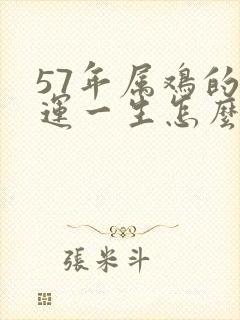 57年属鸡的
運一生怎麼
張米斗